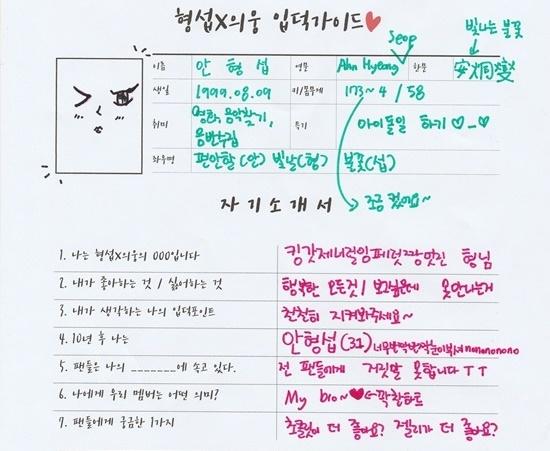 형섭X의웅 입덕가이드
빛나는 불꽃
이름 안 형 섭 영문 Ahn Hyeong Seop 한문 安炯燮
생일 1999.08.09 키/몸무게 173~4 / 58
취미 영화, 음악찾기, 음반수집 특기 아이돌일 하기 ♡_♡
좌우명 편안할(안) 빛날(형) 불꽃(섭)
조금 컸어요~
자기소개서
1. 나는 형섭X의웅의 OOO입니다 킹갓제너럴임페럴짱멋진 형님
2. 내가 좋아하는 것 / 싫어하는 것 행복한 모든것 / 보고싶은데 못만나는거
3. 내가 생각하는 나의 입덕포인트 천천히 지켜봐주세요~
4. 10년 후 나는 안형섭(31) 너무반짝반짝눈이부셔nonononono
5. 팬들은 나의 _______에 속고 있다. 전 팬들에게 거짓말 못합니다 ㅜㅜ
6. 나에게 우리 멤버는 어떤 의미? My bro~♥←꽉찬하트
7. 팬들에게 궁금한 1가지 초콜릿이 더 좋아요? 젤리가 더 좋아요?